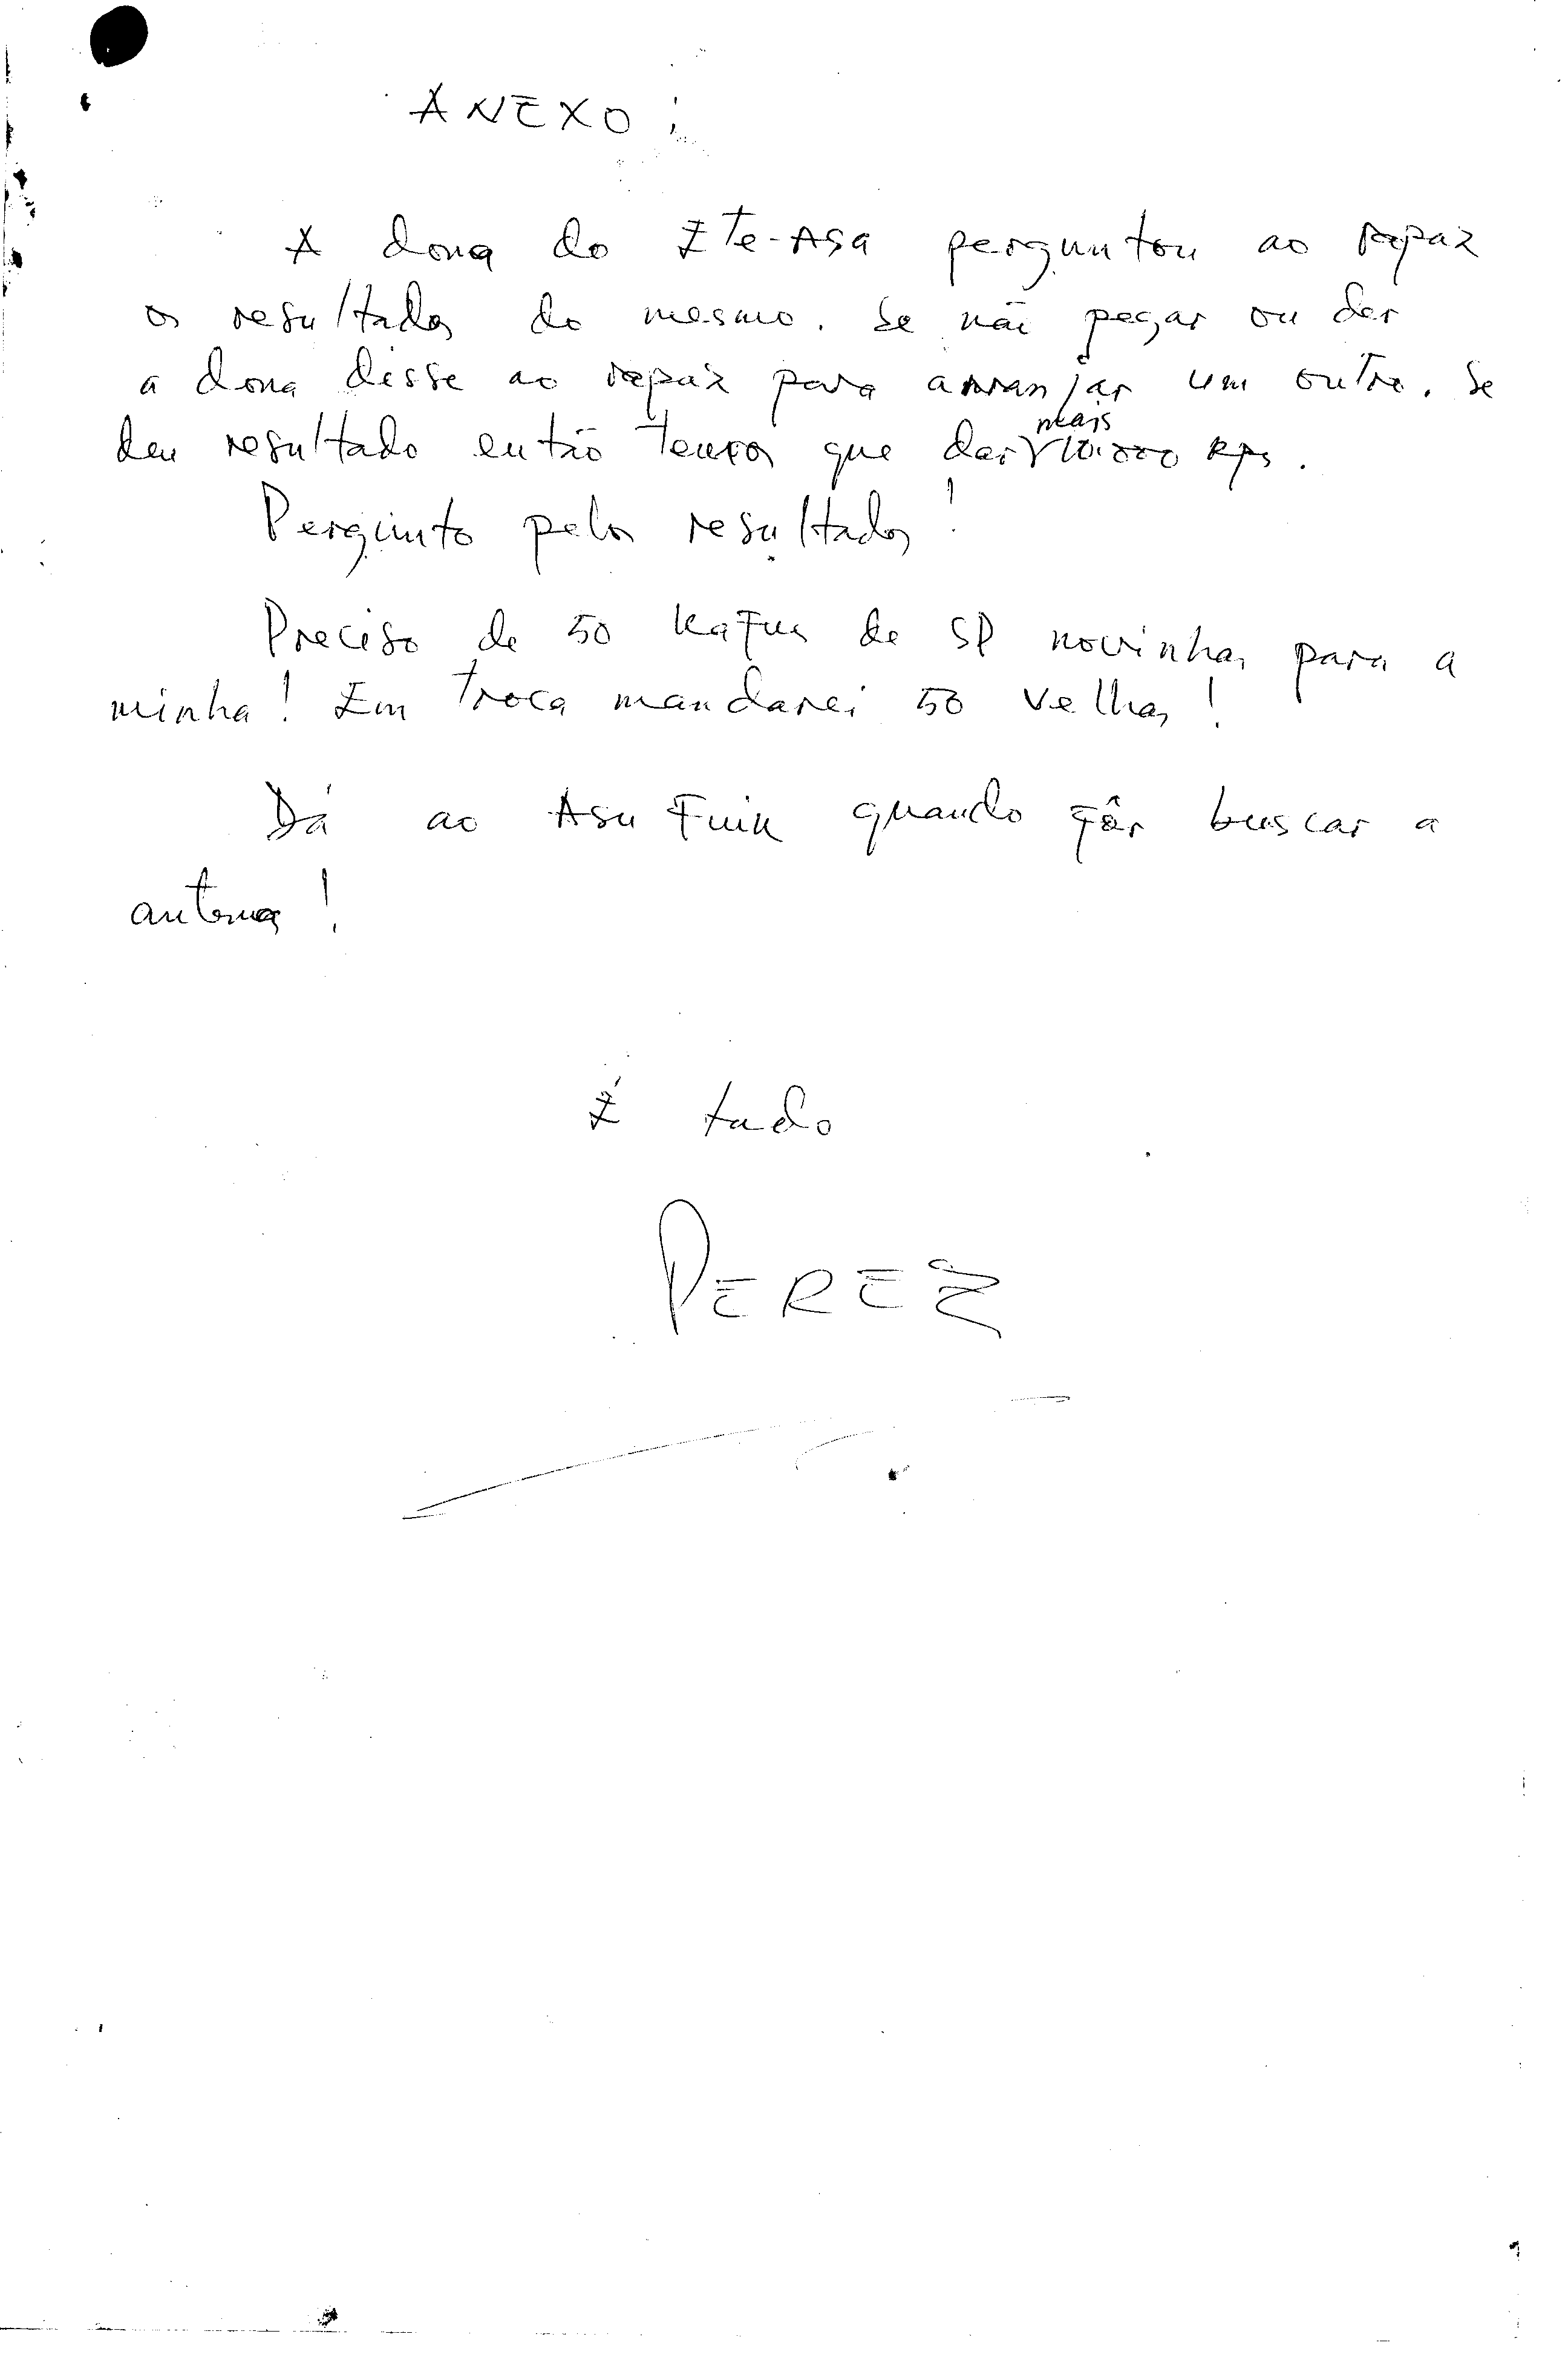 ANEXO:
A dona do Ete-Asa perguntou ao rapaz
os resultados do mesmo. Se não pegar ou der
a dona disse ao rapaz para arranjar um outro. Se
mais
deu resultado então temos que dar 10.000 Rps.
Pergunto pelos resultados!
Preciso de 50 de SP novinhas para a
minha! Em troca mandarei 50 velhas!
Dá ao Asu Fuik quando fôr buscar a
antena!
É tudo
PEREZ